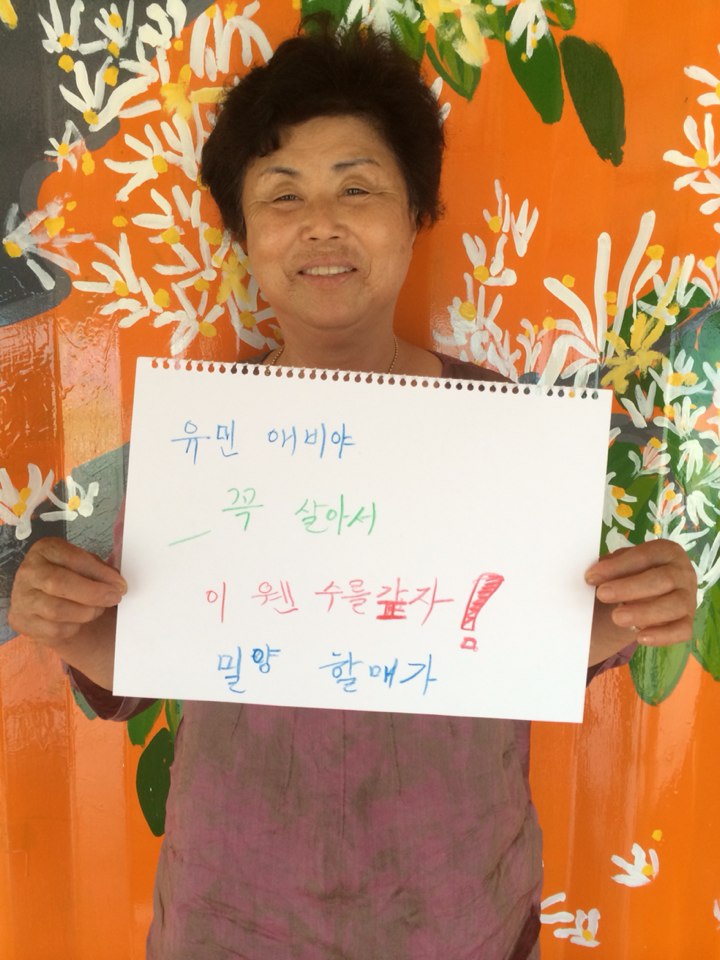 유멘 애비야
꼭 살아서
이 웬수를 갚자!
밀양 할매가